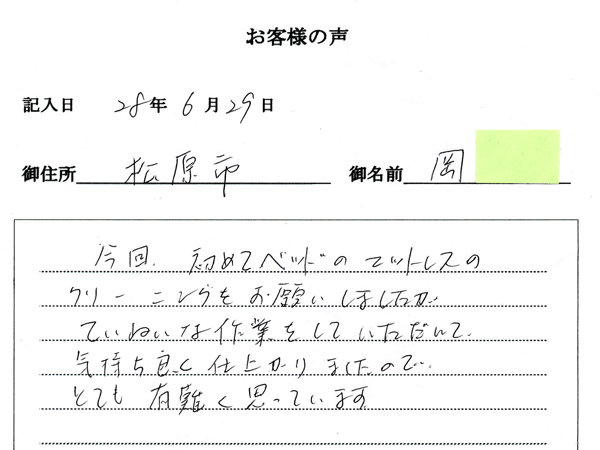 お客様の声
記入日 28年6月29日
御住所 松原市 御名前 岡
今回、初めてベッドのマットレスの
クリーニングをお願いしましたが
ていねいな作業をしていただいて、
気持ち良く仕上がりましたので、
とても有難く思っています